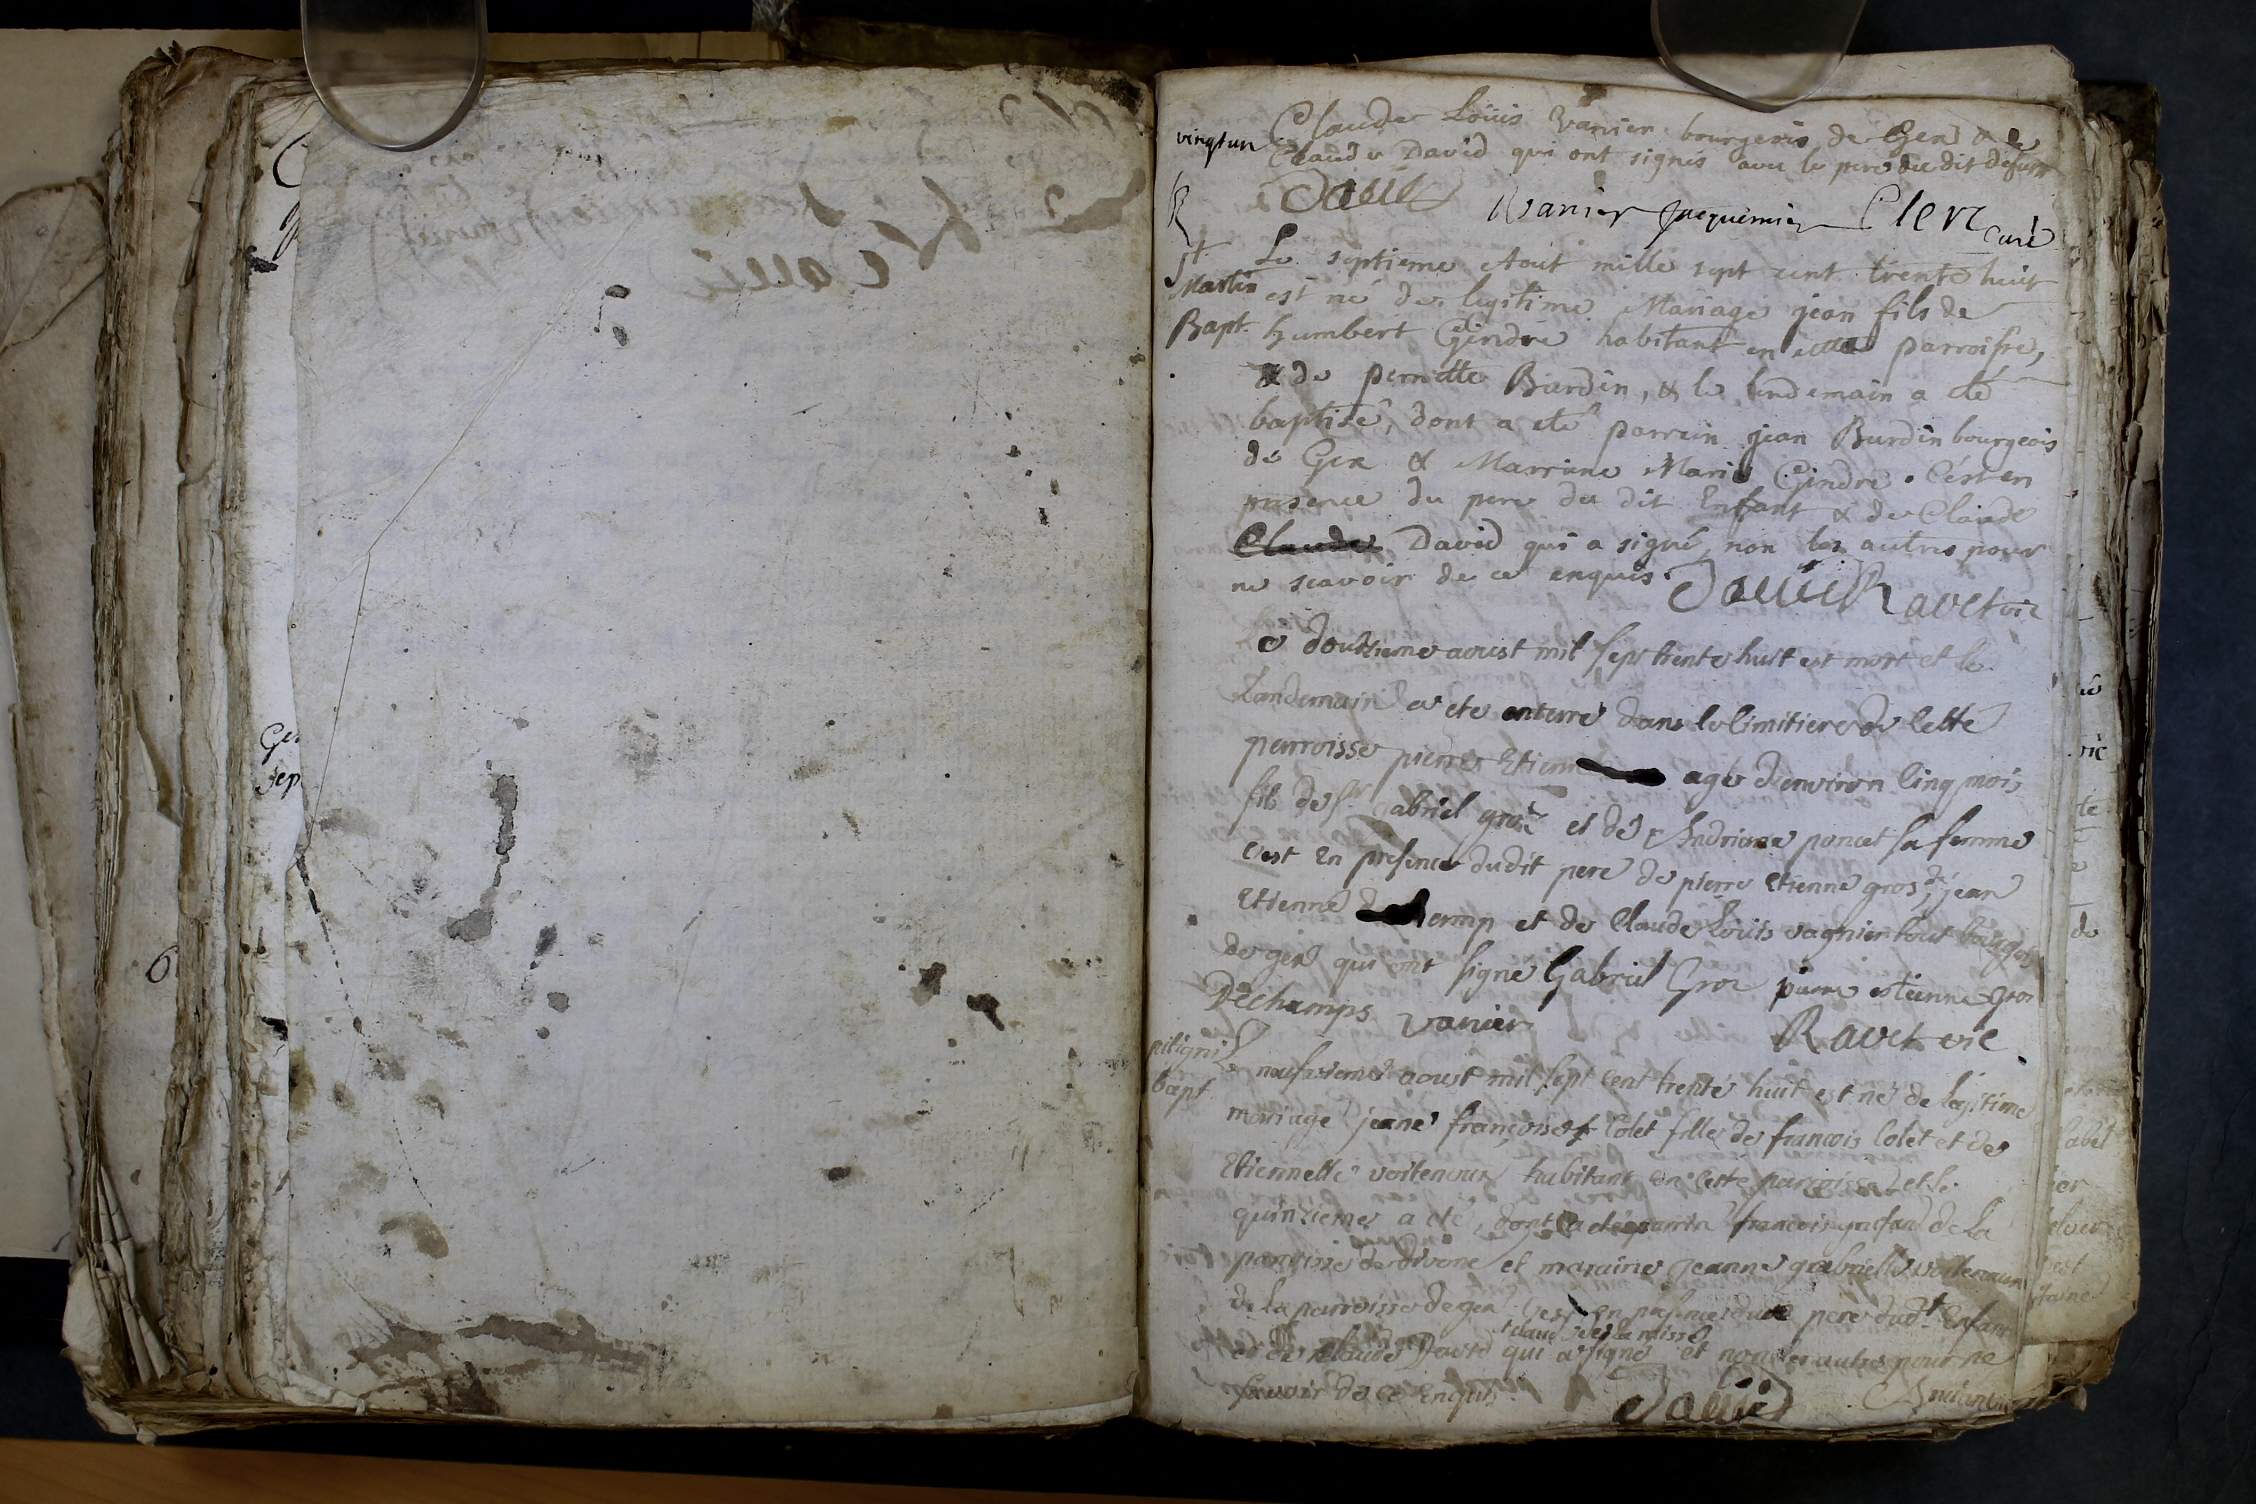 vingtun
Claude Loüis Vanier bourgeois de Gex & de
Claude David qui ont signés avec le pere du dit defunt
David Vanier Jacquemier Clerc curé
St.
Martin
Bapt.
Le septieme Aout mille sept cent trente huit
est né de legitime Mariage jean fils de
humbert Gindre habitant en cette parroisse,
& de pernette Bardin, & le lendemain a eté
baptisé, dont a eté parrain jean Burdin bourgeois
de Gex & Marrine Marie Gindre. C'est en
presence du pere du dit Enfant & de Claude
Claude David qui a signé, non les autres pour
ne scavoir de ce enquis. David Ravet vic
e douzieme aoust mil sept trente huit est mort et le
Landemain a ete enterré dans le Cimitiere de Cette
perroisse pierre Etienne agé d'environ Cinq mois
fils de sr. gabriel gros et de Andriane poncet sa femme
C'est En presence dudit pere de pierre etienne gros, de jean
Etienne et de Claude Louis vagnier tout bourgois
de gex qui ont signé Gabriel Gros pierre etienne gros
Dechamps Vanier Ravet vic
pitigni
bapt
Le noufvieme aoust mil sept cent trente huit est né de legitime
mariage jeane françoise Colet fille de francois Colet et de
Etiennette voitenoux habitant en Cette parroisse et le
quinzieme a eté, dont a eté parrin francois de la
parroisse de divone et maraine jeanne gabrielle voitenoux
de la parroisse de gex C'est En presence du pere dudt. Enfant
et de claude David qui a signé et non les autres pour ne
savoir de ce Enquis
David